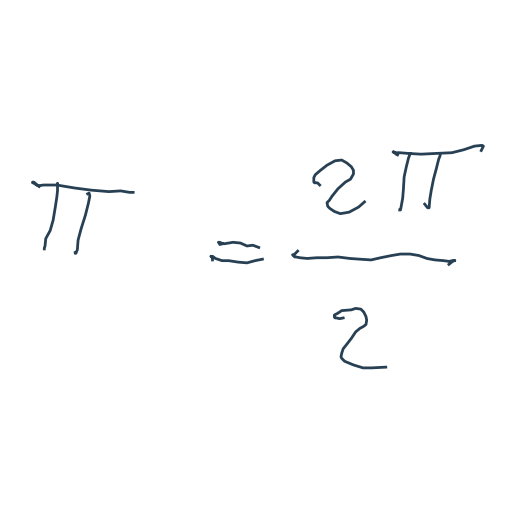 π = 2π
2